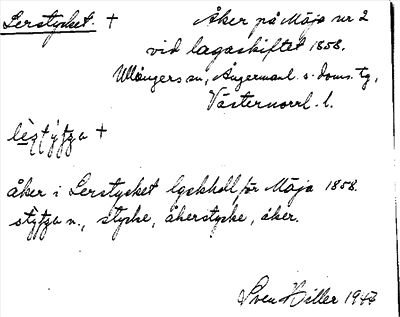 Lerstycket. + Åker på Mäja nr 2
vid lagaskiftet 1858.
Ullångers sn, Ångermanl. s. doms. tg,
Västernorrl. l.
+
åker i Lerstycket för Mäja 1858.
n., stycke, åkerstycke, åker.
Sven Hiller 1947